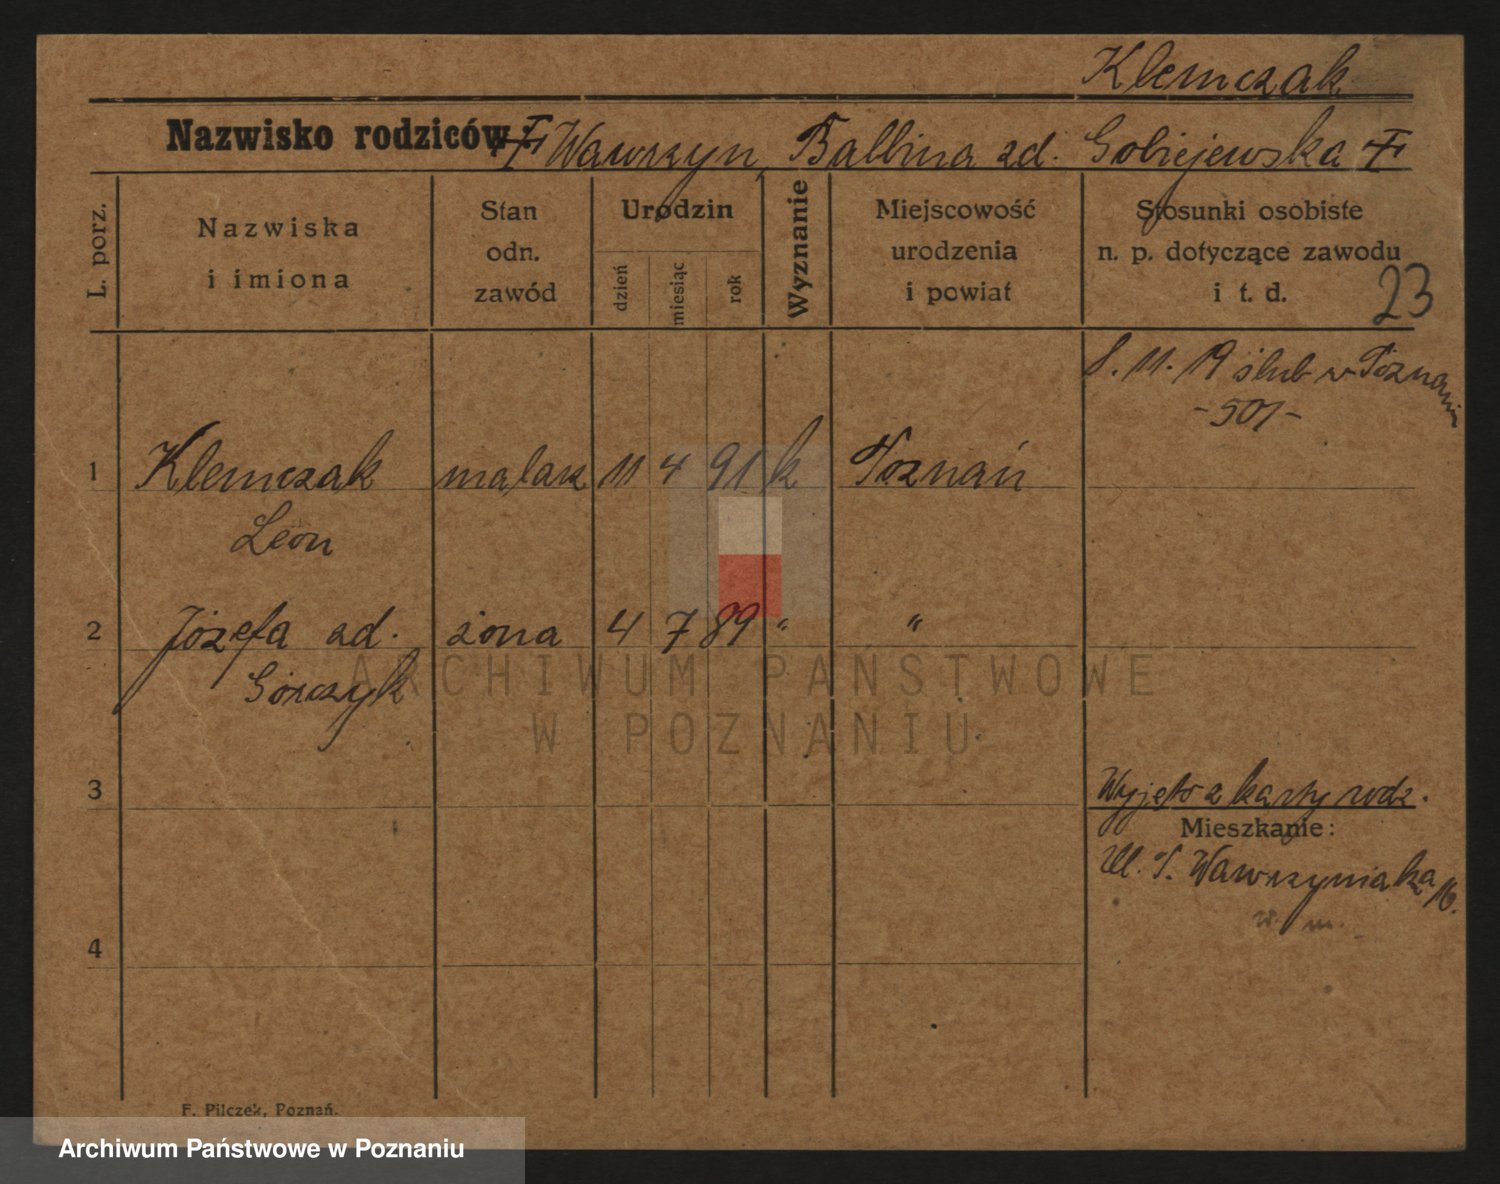 Klemczak
Nazwisko rodziców Wawrzyn, Balbina zd. Gobiejewska
L. porz.
Nazwiska
i imiona
Stan
odn.
zawód
Urodzin
dzień
miesiąc
rok
Wyznanie
Miejscowość
urodzenia
i powiat
Stosunki osobiste
n. p. dotyczące zawodu
i t. d.
23
8. 11. 19 ślub w Poznaniu
-501-
1 Klemczak malarz 11 4 91 k Poznań
Leon
2 Józefa zd. żona 4 7 89 " "
Górczyk
ARCHIWUM PAŃSTWOWE
W POZNANIU
3
Wyjęto z karty rodz.
Mieszkanie:
Ul. P. Wawrzyniaka 16.
w. m.
4
F. Pilczek, Poznań.
Archiwum Państwowe w Poznaniu